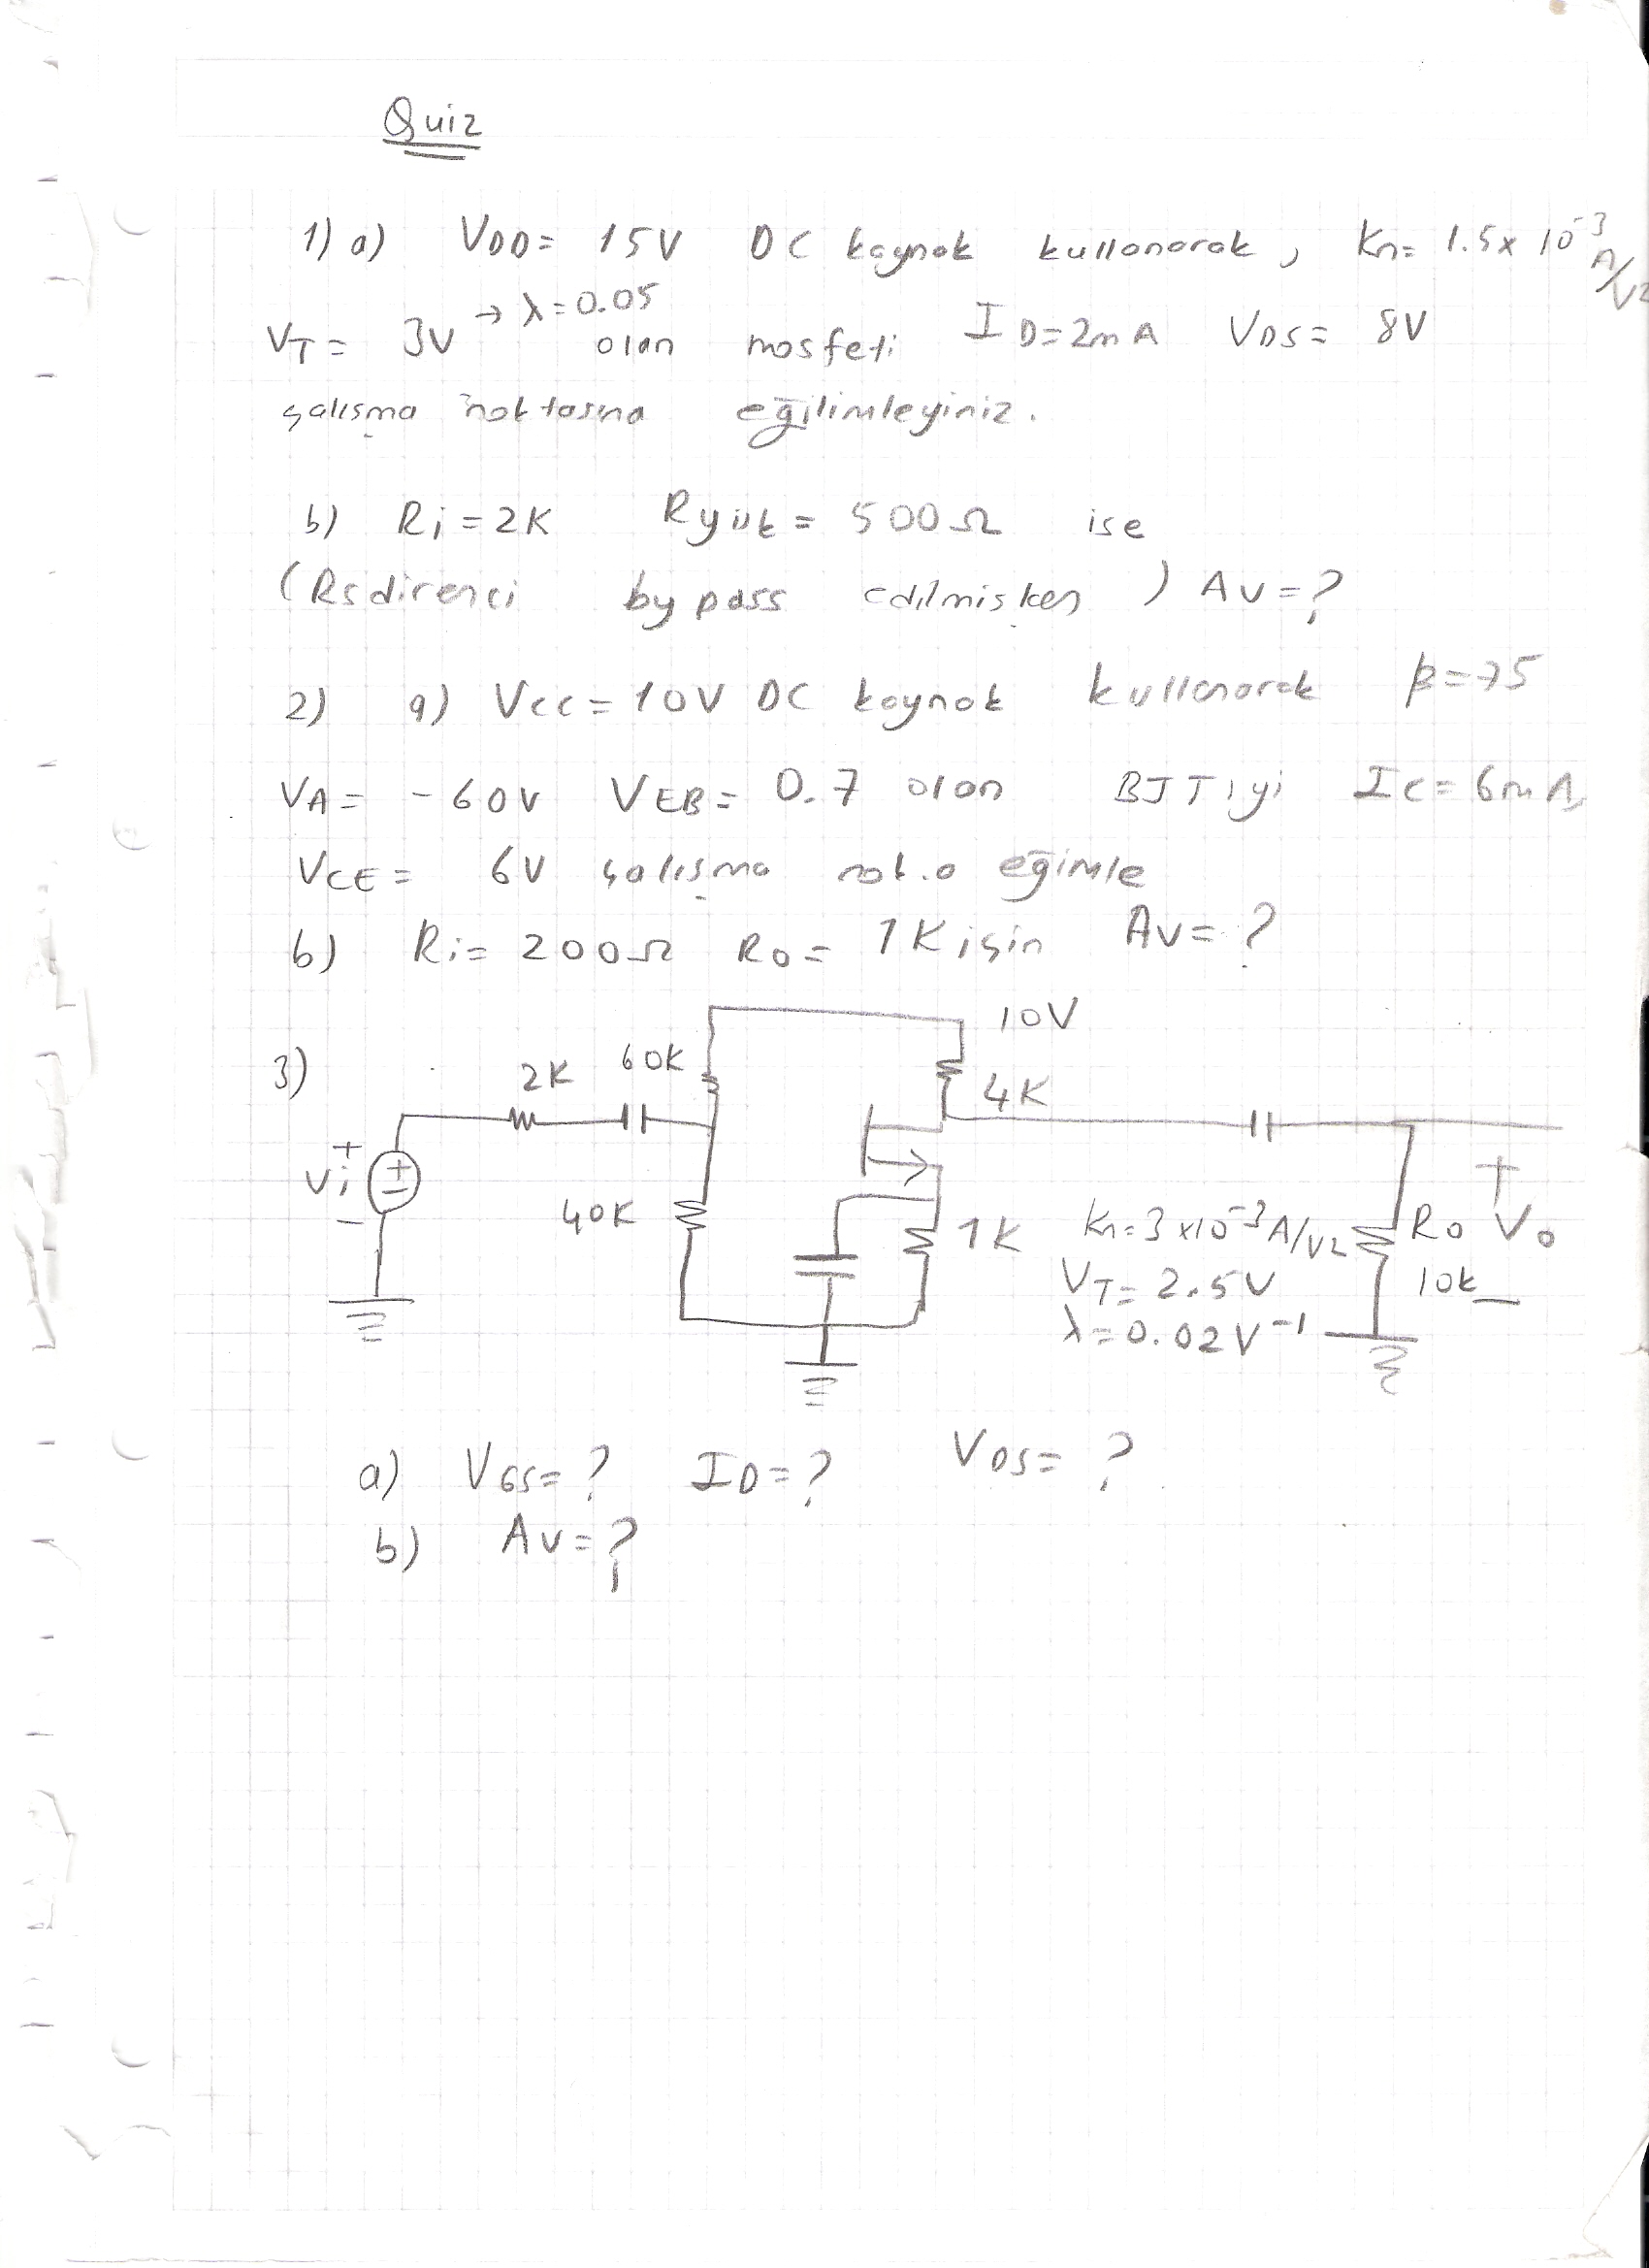 Quiz
1) a) VDD = 15V DC kaynak kullanarak, Kn = 1.5x10⁻³ A/V2
VT = 3V → λ = 0.05 olan mosfeti ID = 2mA VDS = 8V
çalışma noktasına eğilimleyiniz.
b) Ri = 2K Ryük = 500Ω ise
(Rsdirenci by pass edilmişken) AV = ?
2) a) Vcc = 10V DC kaynak kullanarak β = 75
VA = -60V VEB = 0.7 olan BJT'yi IC = 6mA,
VCE = 6V çalışma nok.a eğimle
b) Ri = 200Ω RO = 1K için AV = ?
3)
10V
2K 60K
4K
+
Vi
-
+
-
40K
1K
Kn = 3x10⁻³ A/V2
VT = 2.5V
λ = 0.02V⁻¹
RO
10k
+
Vo
-
a) VGS = ? ID = ? VDS = ?
b) AV = ?